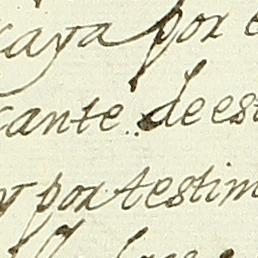 caya por e
cante de est
y por testim